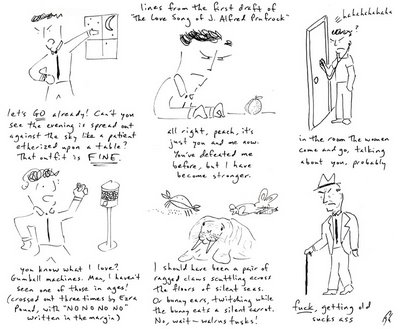 lines from the first draft of
"The Love Song of J. Alfred Prufrock"
let's GO already! Can't you
see the evening is spread out
against the sky like a patient
etherized upon a table?
That outfit is FINE.
all right, peach, it's
just you and me now.
You've defeated me
before, but I have
become stronger.
hehehehahaha
in the room the women
come and go, talking
about you, probably
you know what I love?
Gumball machines. Man, I haven't
seen one of those in ages!
(crossed out three times by Ezra
Pound, with "NO NO NO NO"
written in the margin)
I should have been a pair of
ragged claws scuttling across
the floors of silent seas.
Or bunny ears, twitching while
the bunny eats a silent carrot.
No, wait - walrus tusks!
fuck, getting old
sucks ass